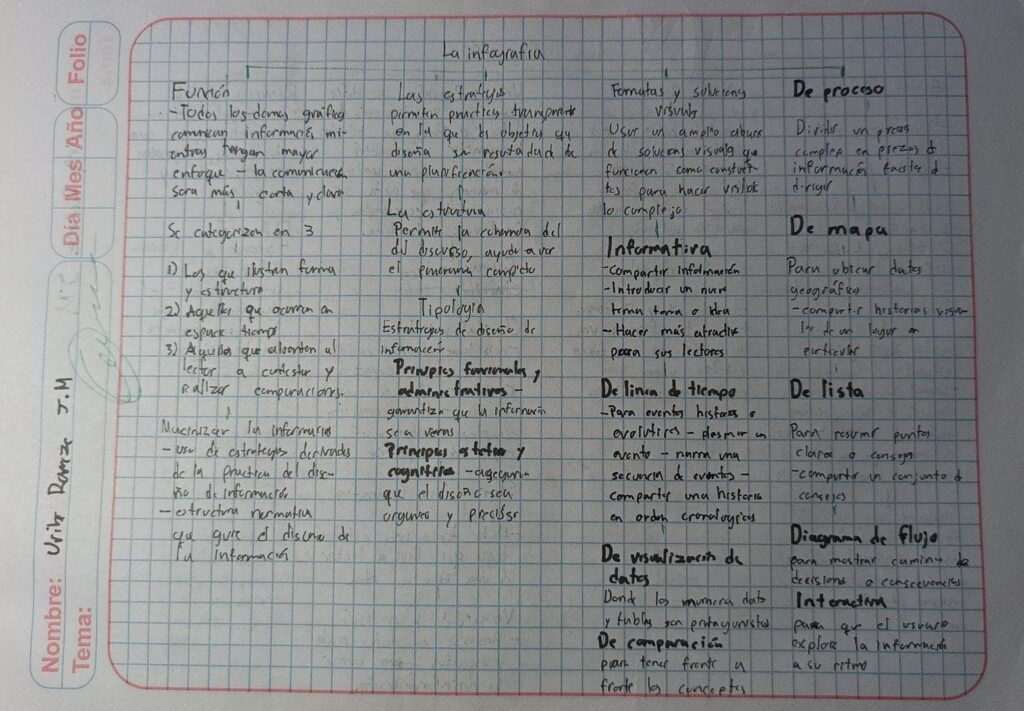 La infografía
Función
- Todos los demas gráficos
comunican información mi-
entras tengan mayor
enfoque - la comunicación
sera más corta y clara
Se categorizan en 3
1) Los que ilustran forma
y estructura
2) Aquellos que ocurren en
espacio tiempo
3) Aquellos que absorben al
lector a contestar y
realizar comparaciones.
Maximizar la información
- Uso de estrategias derivadas
de la practica del dise-
ño de información
- estructura normativa
que guie el discurso de
la información
Las estrategias
permiten practica transparente
en la que los objetos que
diseña son resultado de
una planificación.
La estructura
Permite la coherencia del
del discurso, ayuda a ver
el panorama completo
Tipología
Estrategias de diseño de
información
Principios funcionales y
administrativos -
garantiza que la información
sea veraz
Principios estetico y
cognitivos - asegura
que el diseño sea
organico y preciso
Formatos y soluciones
visuales
Usar un amplio
de soluciones visuales que
funcionen como
para hacer visible
lo complejo
Informativa
- Compartir información
- Introducir un nuevo
tema o idea
- Hacer más atractiva
para sus lectores
De linea de tiempo
- Para eventos historicos o
evolutivos - plasmar un
evento - narra una
secuencia de eventos -
compartir una historia
en orden cronologico
De visualización de
datos
Donde los numeros datos
y tablas son protagonistas
De comparación
para tener frente a
frente los conceptos
De proceso
Dividir un proceso
complejo en piezas de
información faciles de
dirigir
De mapa
Para ubicar datos
geográficos
- compartir historias visua-
les de un lugar en
particular
De lista
Para resumir puntos
claros o consejos
- compartir un conjunto de
consejos
Diagrama de flujo
para mostrar camino de
decisiones o consecuencias
Interactiva
para que el usuario
explore la información
a su ritmo
Folio
Año
Mes
Día
Nombre: Uribe J.M
Tema: